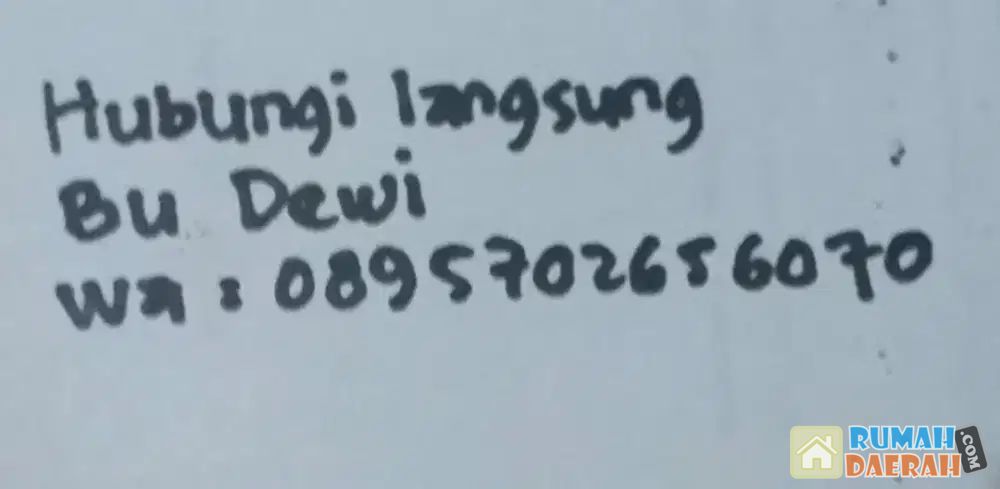 Hubungi langsung
Bu Dewi
wa : 0895702656070
RUMAH
DAERAH.COM